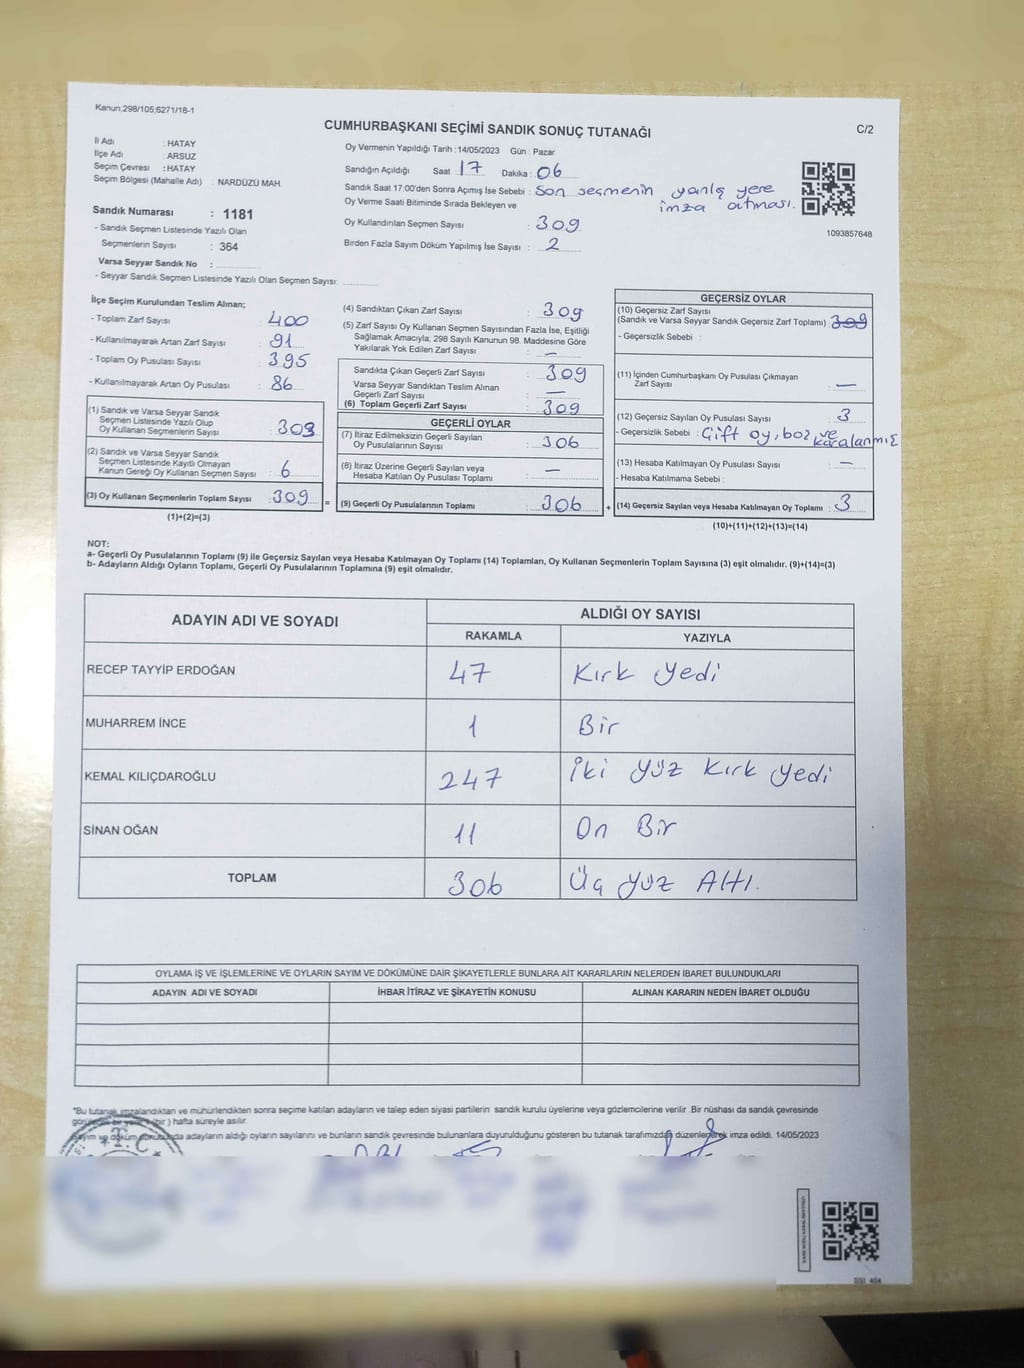 Kanun.298/105;6271/18-1
CUMHURBAŞKANI SEÇİMİ SANDIK SONUÇ TUTANAĞI
C/2
İl Adı : HATAY
İlçe Adı : ARSUZ
Seçim Çevresi : HATAY
Seçim Bölgesi (Mahalle Adı) : NARDÜZÜ MAH.
Sandık Numarası : 1181
- Sandık Seçmen Listesinde Yazılı Olan
Seçmenlerin Sayısı : 364
Varsa Seyyar Sandık No :
- Seyyar Sandık Seçmen Listesinde Yazılı Olan Seçmen Sayısı:
Oy Vermenin Yapıldığı Tarih : 14/05/2023 Gün : Pazar
Sandığın Açıldığı Saat : 17 Dakika : 06
Sandık Saat 17:00'den Sonra Açımış İse Sebebi : Son seçmenin yanlış yere
imza atması.
Oy Verme Saati Bitiminde Sırada Bekleyen ve
Oy Kullandırılan Seçmen Sayısı : 309
Birden Fazla Sayım Döküm Yapılmış İse Sayısı : 2
1093857648
İlçe Seçim Kurulundan Teslim Alınan;
- Toplam Zarf Sayısı : 400
- Kullanılmayarak Artan Zarf Sayısı : 91
- Toplam Oy Pusulası Sayısı : 395
- Kullanılmayarak Artan Oy Pusulası : 86
(1) Sandık ve Varsa Seyyar Sandık
Seçmen Listesinde Yazılı Olup
Oy Kullanan Seçmenlerin Sayısı : 303
(2) Sandık ve Varsa Seyyar Sandık
Seçmen Listesinde Kayıtlı Olmayan
Kanun Gereği Oy Kullanan Seçmen Sayısı : 6
(3) Oy Kullanan Seçmenlerin Toplam Sayısı : 309
(1)+(2)=(3)
(4) Sandıktan Çıkan Zarf Sayısı : 309
(5) Zarf Sayısı Oy Kullanan Seçmen Sayısından Fazla İse, Eşitliği
Sağlamak Amacıyla; 298 Sayılı Kanunun 98. Maddesine Göre
Yakılarak Yok Edilen Zarf Sayısı : —
Sandıkta Çıkan Geçerli Zarf Sayısı : 309
Varsa Seyyar Sandıktan Teslim Alınan
Geçerli Zarf Sayısı : —
(6) Toplam Geçerli Zarf Sayısı : 309
GEÇERLİ OYLAR
(7) İtiraz Edilmeksizin Geçerli Sayılan
Oy Pusulalarının Sayısı : 306
(8) İtiraz Üzerine Geçerli Sayılan veya
Hesaba Katılan Oy Pusulası Toplamı : —
= (9) Geçerli Oy Pusulalarının Toplamı : 306
GEÇERSİZ OYLAR
(10) Geçersiz Zarf Sayısı
(Sandık ve Varsa Seyyar Sandık Geçersiz Zarf Toplamı) : 309
- Geçersizlik Sebebi :
(11) İçinden Cumhurbaşkanı Oy Pusulası Çıkmayan
Zarf Sayısı : —
(12) Geçersiz Sayılan Oy Pusulası Sayısı : 3
- Geçersizlik Sebebi : Çift oy, boş ve
karalanmış
(13) Hesaba Katılmayan Oy Pusulası Sayısı : —
- Hesaba Katılmama Sebebi :
+ (14) Geçersiz Sayılan veya Hesaba Katılmayan Oy Toplamı : 3
(10)+(11)+(12)+(13)=(14)
NOT:
a- Geçerli Oy Pusulalarının Toplamı (9) ile Geçersiz Sayılan veya Hesaba Katılmayan Oy Toplamı (14) Toplamları, Oy Kullanan Seçmenlerin Toplam Sayısına (3) eşit olmalıdır. (9)+(14)=(3)
b- Adayların Aldığı Oyların Toplamı, Geçerli Oy Pusulalarının Toplamına (9) eşit olmalıdır.
ADAYIN ADI VE SOYADI ALDIĞI OY SAYISI
RAKAMLA YAZIYLA
RECEP TAYYİP ERDOĞAN 47 Kırk yedi
MUHARREM İNCE 1 Bir
KEMAL KILIÇDAROĞLU 247 İki yüz Kırk yedi
SİNAN OĞAN 11 On Bir
TOPLAM 306 Üç yüz Altı.
OYLAMA İŞ VE İŞLEMLERİNE VE OYLARIN SAYIM VE DÖKÜMÜNE DAİR ŞİKAYETLERLE BUNLARA AİT KARARLARIN NELERDEN İBARET BULUNDUKLARI
ADAYIN ADI VE SOYADI İHBAR İTİRAZ VE ŞİKAYETİN KONUSU ALINAN KARARIN NEDEN İBARET OLDUĞU
*Bu tutanak imzalandıktan ve mühürlendikten sonra seçime katılan adayların ve talep eden siyasi partilerin sandık kurulu üyelerine veya gözlemcilerine verilir. Bir nüshası da sandık çevresinde
(bir) hafta süreyle asılır.
Sayım ve döküm adayların aldığı oyların sayılarını ve bunların sandık çevresinde bulunanlara duyurulduğunu gösteren bu tutanak tarafımızdan düzenlenerek imza edildi. 14/05/2023
T.C.
SSI_404